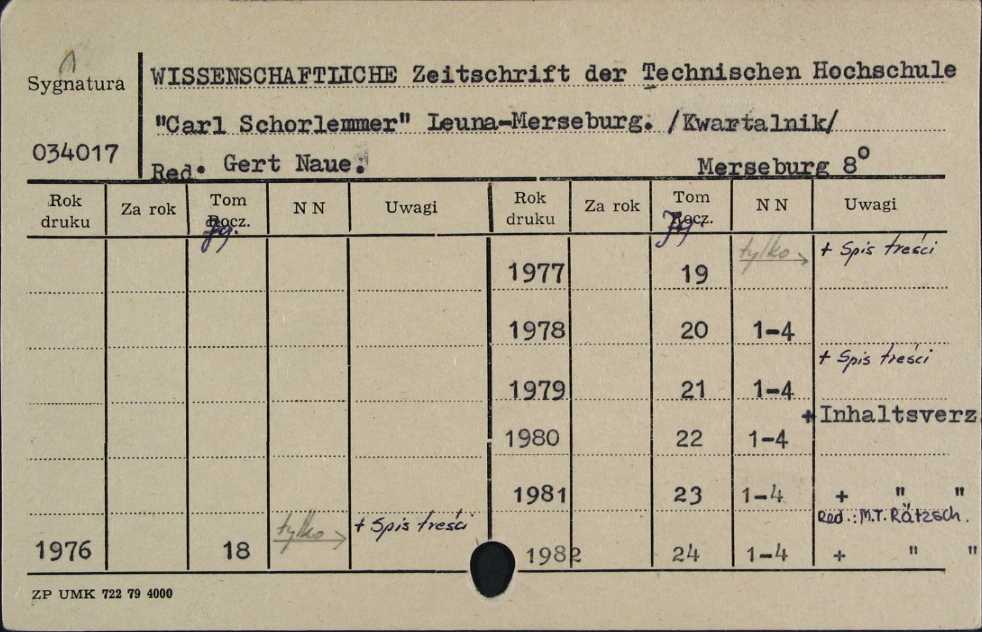 Sygnatura
WISSENSCHAFTLICHE Zeitschrift der Technischen Hochschule
"Carl Schorlemmer" Leuna-Merseburg. /Kwartalnik/
034017
Red. Gert Naue. Merseburg 8°
Rok druku Za rok Tom Rocz. Jg. N N Uwagi Rok druku Za rok Tom Rocz. Jg. N N Uwagi
1977 19 tylko → + Spis treści
1978 20 1-4
1979 21 1-4 + Spis treści
1980 22 1-4 + Inhaltsverz.
1981 23 1-4 + " "
1976 18 tylko → + Spis treści
Red.: M.T. Rätzsch.
1982 24 1-4 + " "
ZP UMK 722 79 4000